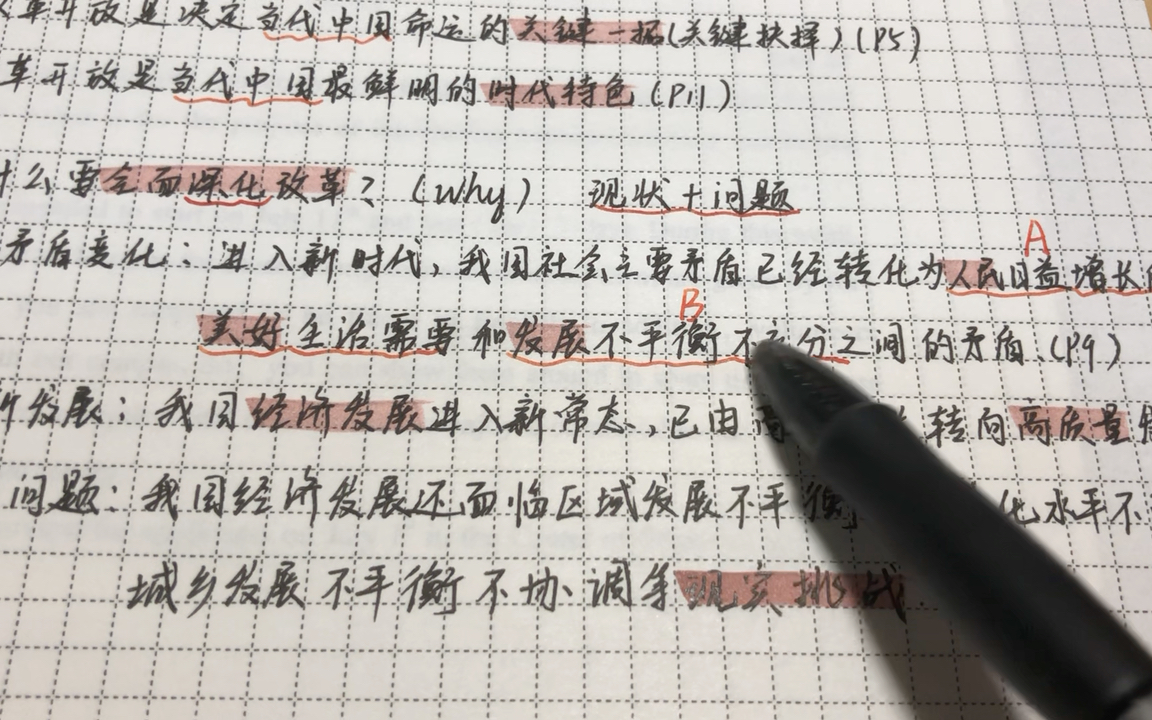 革开放是决定当代中国命运的关键一招(关键抉择)(P5)
革开放是当代中国最鲜明的时代特色(P11)
什么要全面深化改革？(Why) 现状+问题
A
矛盾变化：进入新时代，我国社会主要矛盾已经转化为人民日益增长的
B
美好生活需要和发展不平衡不充分之间的矛盾.(P9)
发展：我国经济发展进入新常态，已由高 转向高质量
问题：我国经济发展还面临区域发展不平衡 化水平不
城乡发展不平衡不协调等现实挑战.